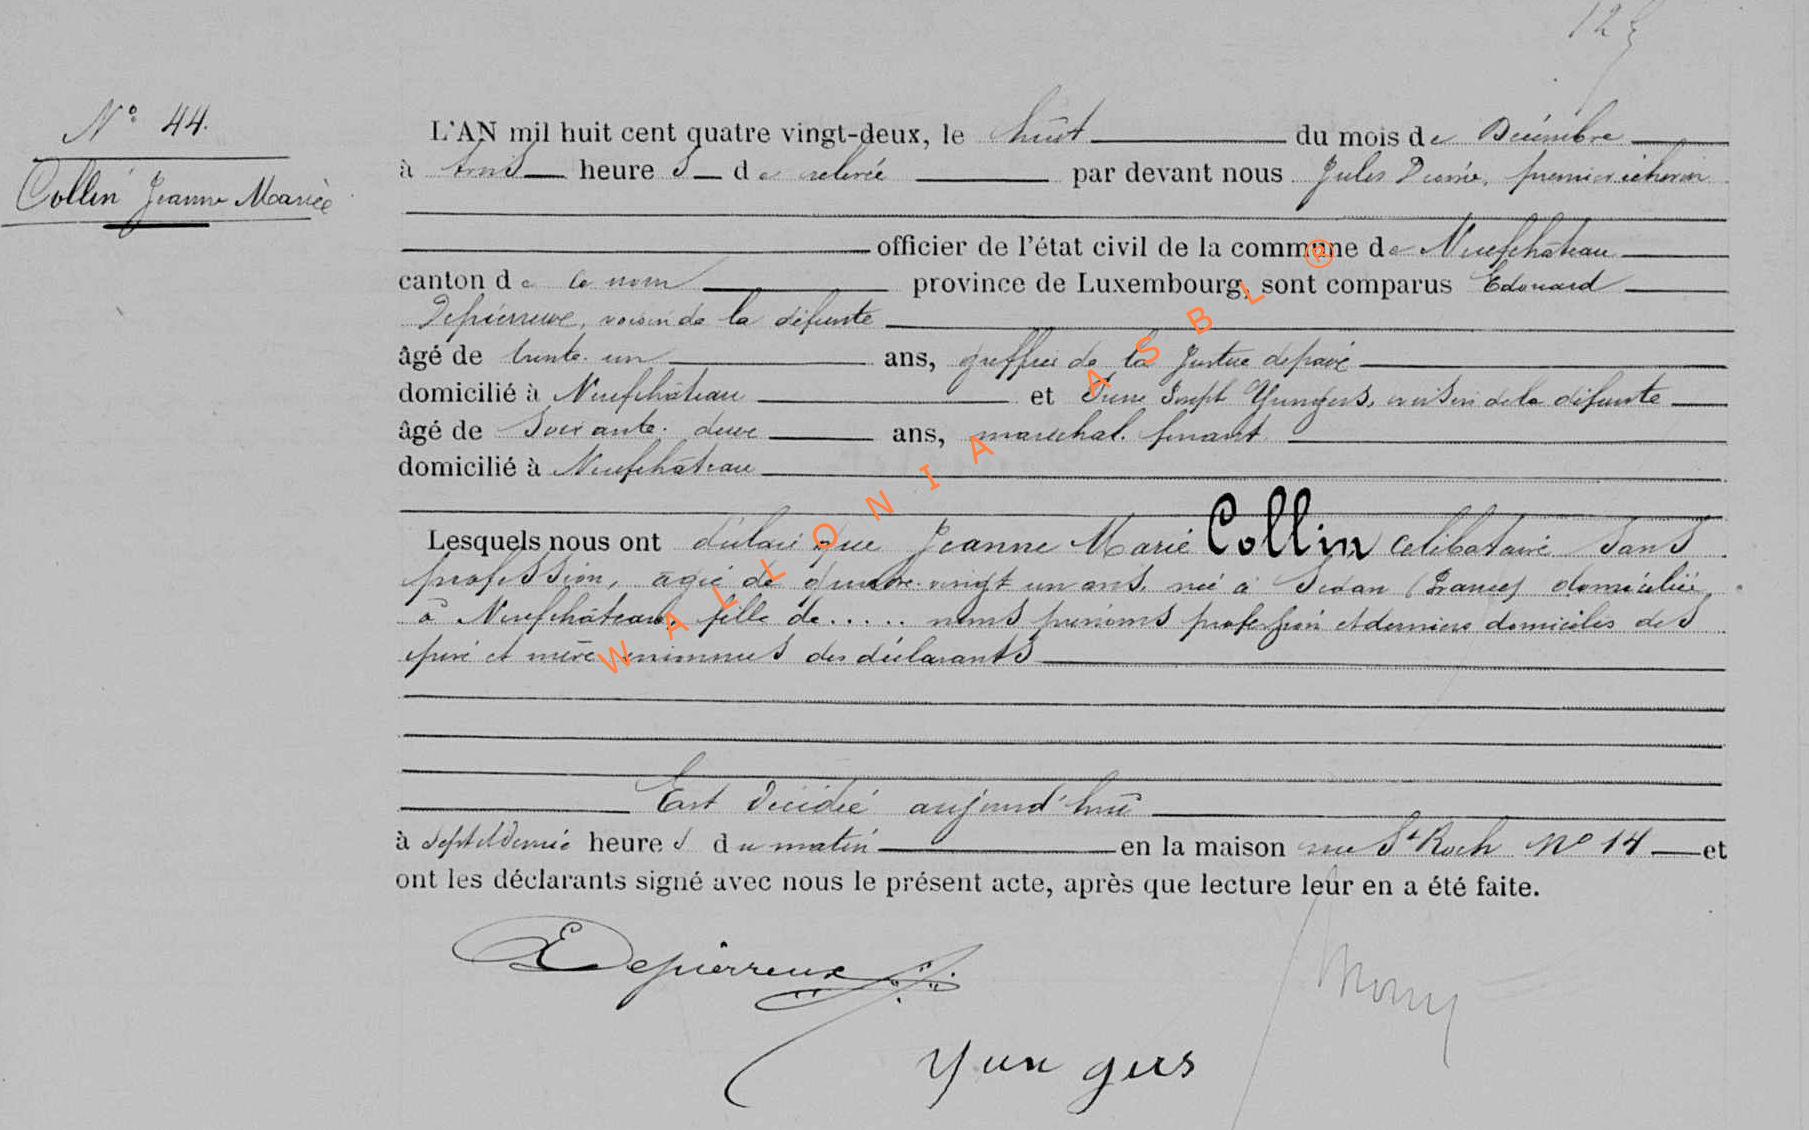 N° 44.
Collin Jeanne Marie
L'AN mil huit cent quatre vingt-deux, le huit du mois de Décembre
à trois heures de relevée par devant nous Jules premier échevin
officier de l'état civil de la commune de Neufchâteau
canton de ce nom province de Luxembourg, sont comparus Edouard
Depierreux, voisin de la défunte
âgé de trente-un ans, greffier de la Justice de paix
domicilié à Neufchâteau et Joseph Yungers, voisin de la défunte
âgé de soixante-deux ans, maréchal ferrant
domicilié à Neufchâteau
Lesquels nous ont déclaré que Jeanne Marie Collin célibataire sans
profession, âgée de quatre-vingt un ans, née à Sedan (France) domiciliée
à Neufchâteau, fille de..... noms prénoms profession et derniers domiciles des
père et mère inconnus des déclarants
Est décédée aujourd'hui
à sept et demie heures du matin en la maison rue St Roch N° 14 et
ont les déclarants signé avec nous le présent acte, après que lecture leur en a été faite.
EDepierreux
Yungers
WALLONIA ASBL ®